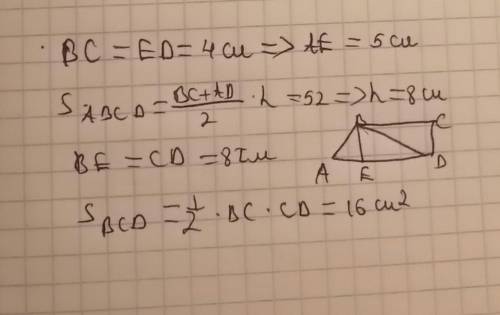 BC = ED = 4 см => AE = 5 см
S ABCD = BC+AD/2 · h = 52 => h = 8 см
BE = CD = 8 см
B C
A E D
S BCD = 1/2 · BC · CD = 16 см²